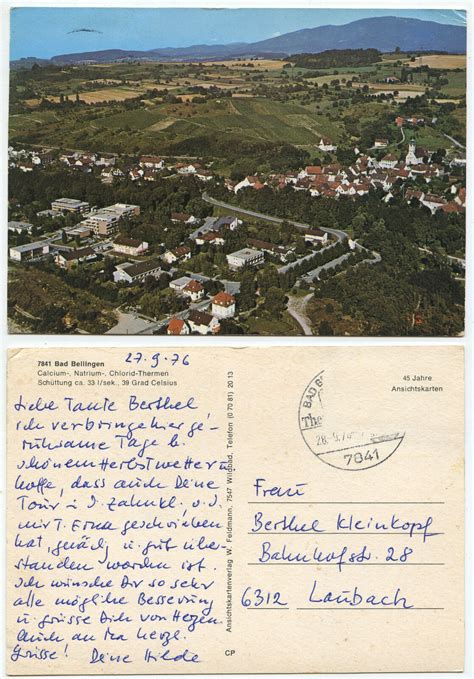 7841 Bad Bellingen
Calcium-, Natrium-, Chlorid-Thermen
Schüttung ca. 33 l/sek., 39 Grad Celsius
27.9.76
Liebe Tante Berthel
ich verbringe hier ge-
ruhsame Tage b.
schönem Herbstwetter u
hoffe, dass auch Deine
Tour i. d. Zahnkl., v. d.
mir T. Erna geschrieben
hat, gut über-
standen worden ist.
Ich wünsche Dir so sehr
alle mögliche Besserung
u grüsse Dich von Herzen.
Auch an Ma herzl.
Grüsse! Deine Hilde
CP
Ansichtskartenverlag W. Feldmann, 7547 Wildbad, Telefon (0 70 81) 20 13
45 Jahre
Ansichtskarten
BAD B
The
28.-9.76
7841
Frau
Berthel Kleinkopf
Bahnhofstr. 28
6312 Laubach